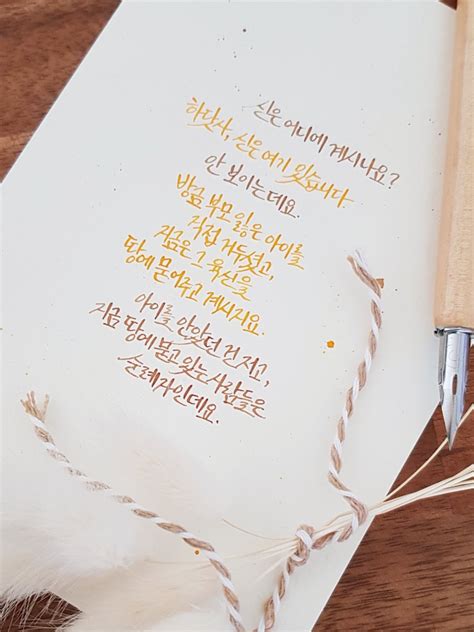 신은 어디에 계시나요?
하닷사, 신은 여기 있습니다.
안 보이는데요.
방금 부모 잃은 아이를
직접 거두셨고,
지금은 그 육신을
땅에 묻어주고 계시지요.
아이를 안았던 건 저고,
지금 땅에 묻고 있는 사람들은
순례자인데요.